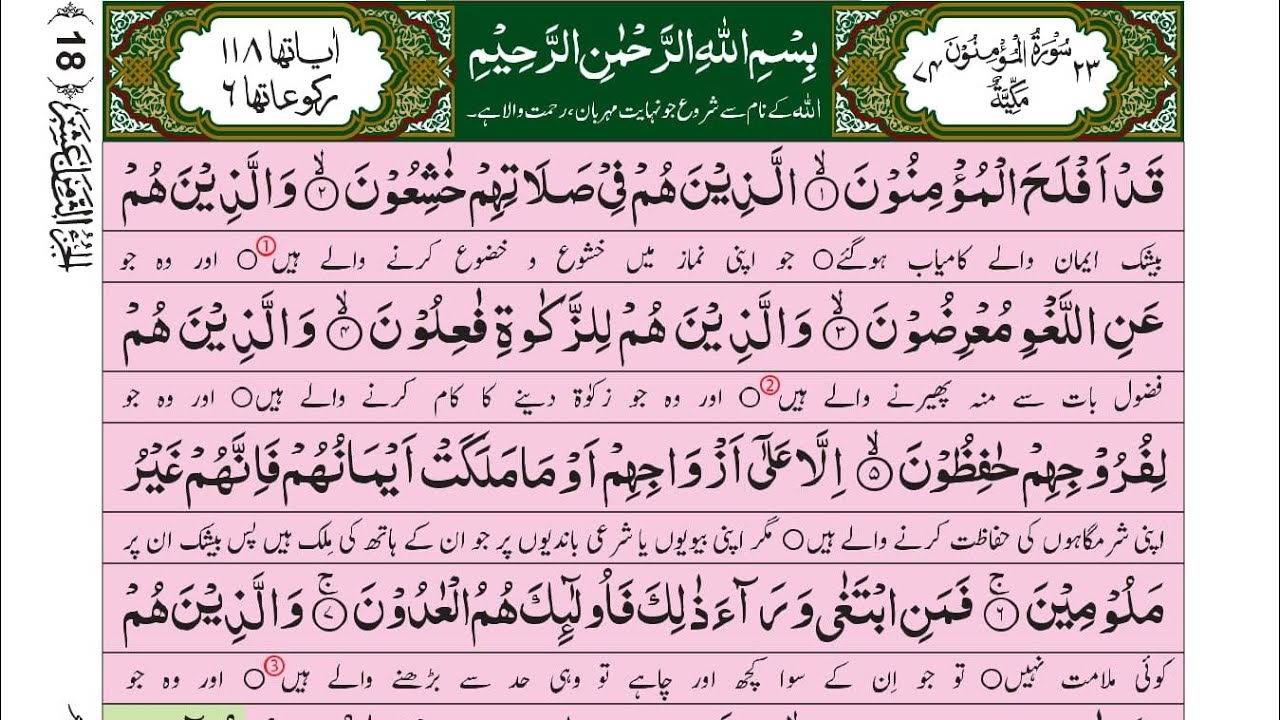 سُوْرَةُ الْمُؤْمِنُوْنَ
٢٣
٧٤
مَكِّيَّةٌ
بِسْمِ اللهِ الرَّحْمٰنِ الرَّحِيْمِ
اللہ کے نام سے شروع جو نہایت مہربان، رحمت والا ہے۔
اٰیاتھا ١١٨
رکوعاتھا ٦
قَدْ اَفْلَحَ الْمُؤْمِنُوْنَ ۙ﴿۱﴾ الَّذِيْنَ هُمْ فِيْ صَلَاتِهِمْ خٰشِعُوْنَ ۙ﴿۲﴾ وَالَّذِيْنَ هُمْ
بیشک ایمان والے کامیاب ہوگئے○ جو اپنی نماز میں خشوع و خضوع کرنے والے ہیں①○ اور وہ جو
عَنِ اللَّغْوِ مُعْرِضُوْنَ ۙ﴿۳﴾ وَالَّذِيْنَ هُمْ لِلزَّكٰوةِ فٰعِلُوْنَ ۙ﴿۴﴾ وَالَّذِيْنَ هُمْ
فضول بات سے منہ پھیرنے والے ہیں②○ اور وہ جو زکوٰۃ دینے کا کام کرنے والے ہیں○ اور وہ جو
لِفُرُوْجِهِمْ حٰفِظُوْنَ ۙ﴿۵﴾ اِلَّا عَلٰۤى اَزْوَاجِهِمْ اَوْ مَا مَلَكَتْ اَيْمَانُهُمْ فَاِنَّهُمْ غَيْرُ
اپنی شرمگاہوں کی حفاظت کرنے والے ہیں○ مگر اپنی بیویوں یا شرعی باندیوں پر جو ان کے ہاتھ کی مِلک ہیں پس بیشک ان پر
مَلُوْمِيْنَ ۚ﴿۶﴾ فَمَنِ ابْتَغٰى وَرَآءَ ذٰلِكَ فَاُولٰٓئِكَ هُمُ الْعٰدُوْنَ ۚ﴿۷﴾ وَالَّذِيْنَ هُمْ
کوئی ملامت نہیں○ تو جو اِن کے سوا کچھ اور چاہے تو وہی حد سے بڑھنے والے ہیں③○ اور وہ جو
الجزء الثامن عشر ﴿18﴾